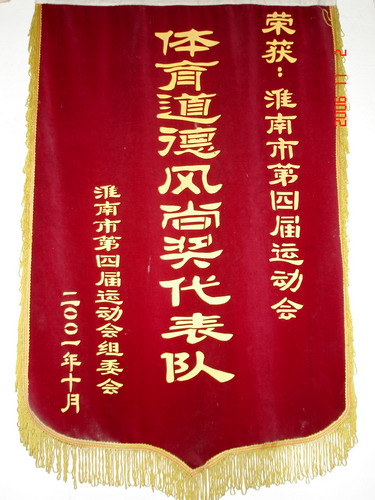 荣获：淮南市第四届运动会
体育道德风尚奖代表队
淮南市第四届运动会组委会
二〇〇一年十月
2006 11 2